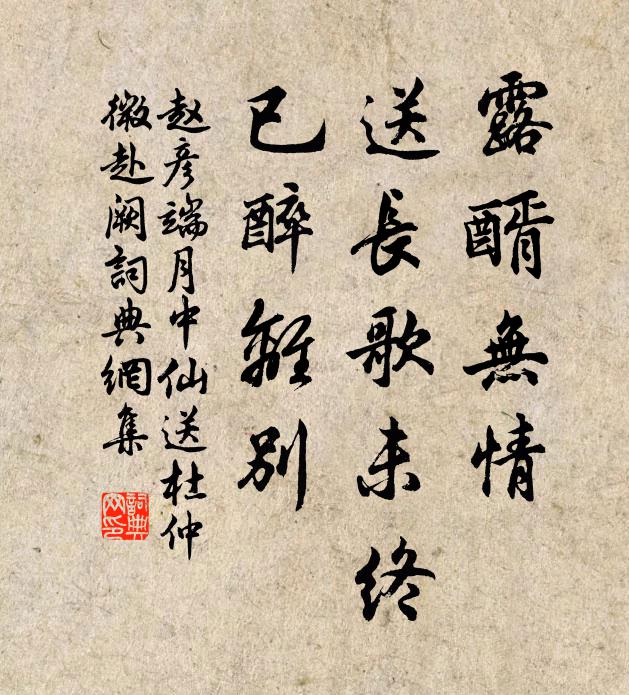 露醑無情
送長歌未終
已醉離別
赵彦端月中仙送杜仲
微赴阙詞典網集
詞典
网印